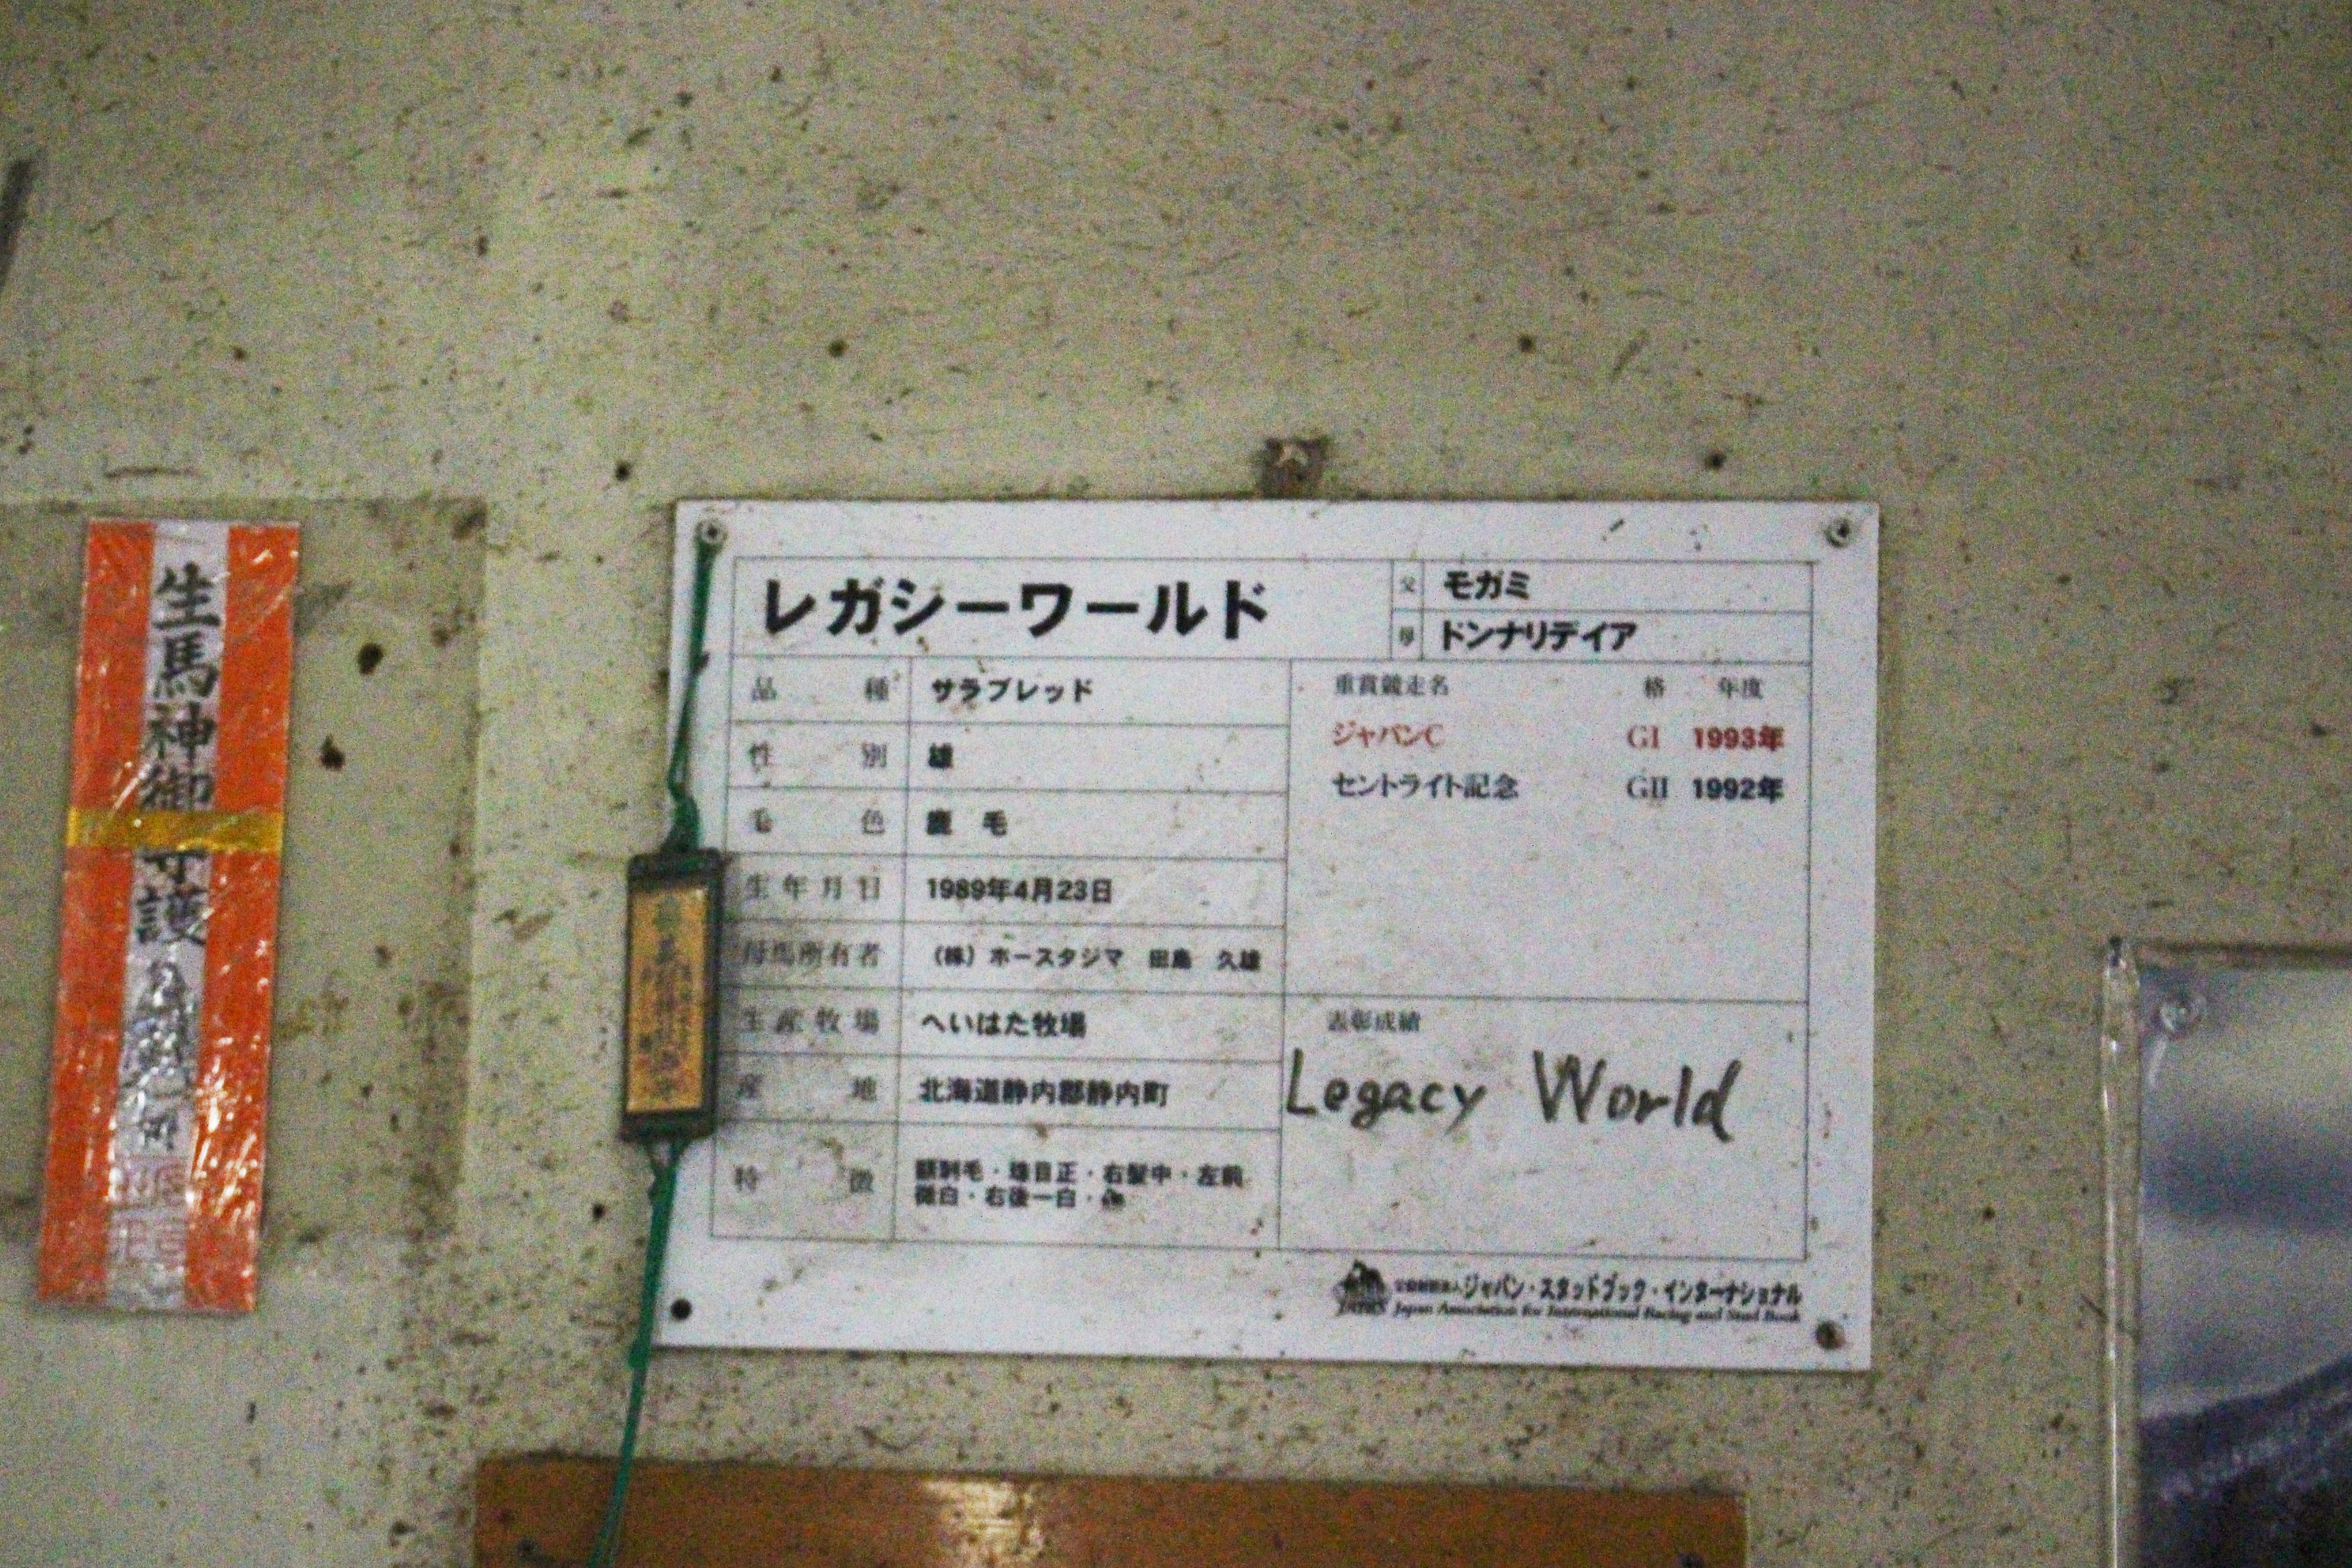 生馬神御守護
レガシーワールド
父 モガミ
母 ドンナリデイア
品種 サラブレッド
性別 雄
毛色 鹿 毛
生年月日 1989年4月23日
母馬所有者 (株) ホースタジマ 田島 久雄
生産牧場 へいはた牧場
産地 北海道静内郡静内町
特徴 額刺毛・珠目正・右髪中・左前
微白・右後一白・
重賞競走名 格 年度
ジャパンC GI 1993年
セントライト記念 GII 1992年
表彰成績
Legacy World
ジャパン・スタッドブック・インターナショナル
Japan Association for International Racing and Stud Book